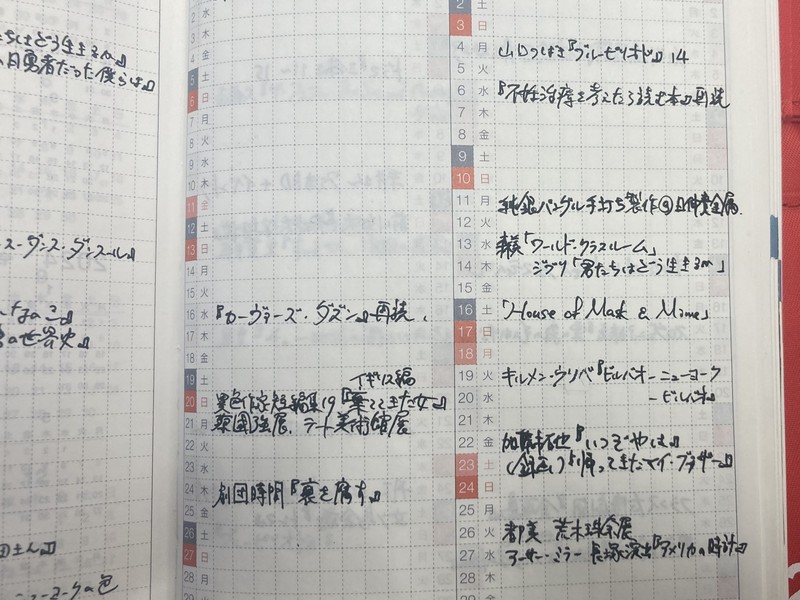 ちはどう生きるか』
日勇者だった僕らは』
ス・ダンス・ダンスール』
ニューヨークの色
2 水
3 木
4 金
5 土
6 日
7 月
8 火
9 水
10 木
11 金
12 土
13 日
14 月
15 火
16 水 『カーヴァーズ・ダズン』再読.
17 木
18 金
19 土 イギリス編
20 日 異色作家短編集19『棄ててきた女』
21 月 蔡國強展、テート美術館展
22 火
23 水
24 木 劇団時間『裏を腐す』
25 金
26 土
27 日
28 月
2 土
3 日
4 月 山口つばさ『ブルーピリオド』14
5 火
6 水 『不妊治療を考えたら読む本』再読
7 木
8 金
9 土
10 日
11 月 純銀バングル手打ち製作@
12 火
13 水 森美「ワールド・クラスルーム」
14 木 ジブリ「君たちはどう生きるか」
15 金
16 土 「House of Mask & Mime」
17 日
18 月
19 火 キルメン・ウリベ『ビルバオ-ニューヨーク
20 水 -ビルバオ』
21 木
22 金 加藤拓也『いつぞやは』
23 土 (企画)『帰ってきたマイ・ブラザー』
24 日
25 月
26 火 都美 荒木珠奈展
27 水 アーサー・ミラー 長塚演出『アメリカの時計』
28 木
29 金